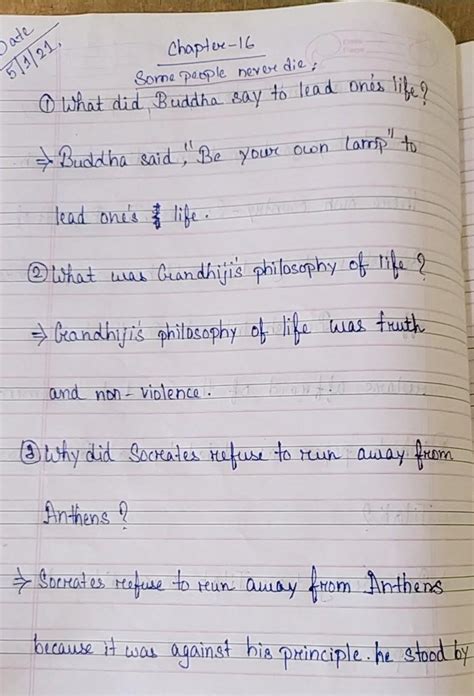 Date
5/1/21,
Chapter-16
Some people never die;
① What did, Buddha say to lead one's life?
⇒ Buddha said, "Be your own lamp" to
lead one's life.
② What was Gandhiji's philosophy of life?
⇒ Gandhiji's philosophy of life was truth
and non-violence.
③ Why did Socrates refuse to run away from
Anthens?
⇒ Socrates refuse to run away from Anthens
because it was against his principle. he stood by